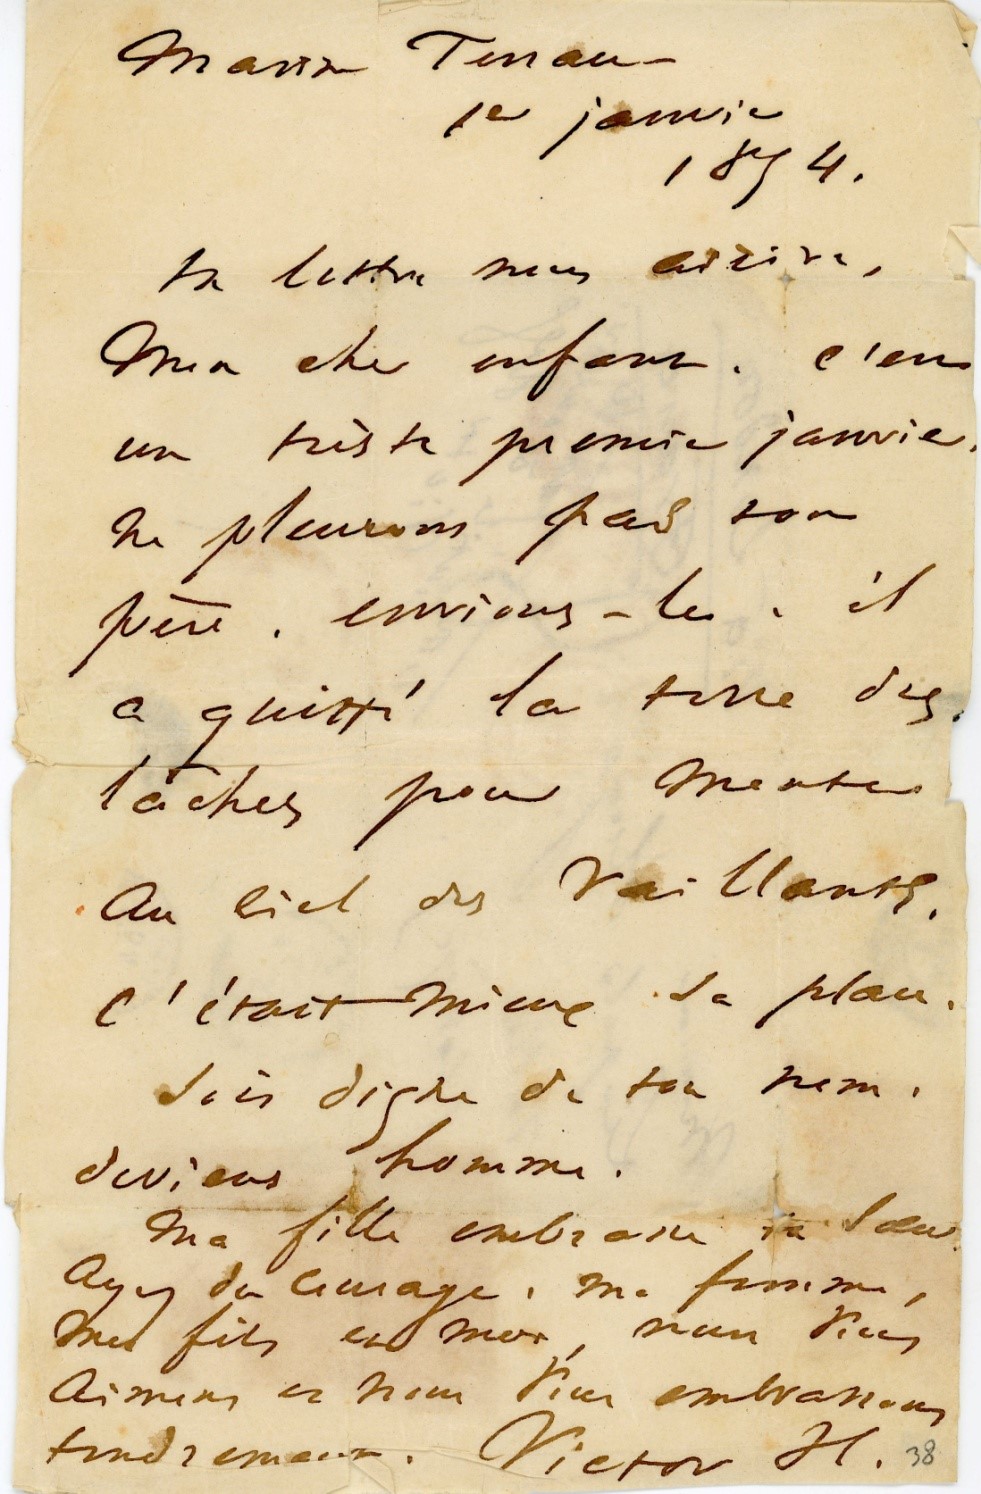 Marine Terrace
1er janvier
1854.
ta lettre nous arrive,
Mon cher enfant. c'est
un triste premier janvier.
ne pleurons pas ton
père. envions-le. il
a quitté la terre des
lâches pour monter
au ciel des vaillants.
c'était mieux sa place.
Sois digne de ton nom.
deviens homme.
Ma fille embrasse ta sœur.
Ayez du courage. ma femme,
mes fils et moi, nous vous
aimons et nous vous embrassons
tendrement. Victor H. 38